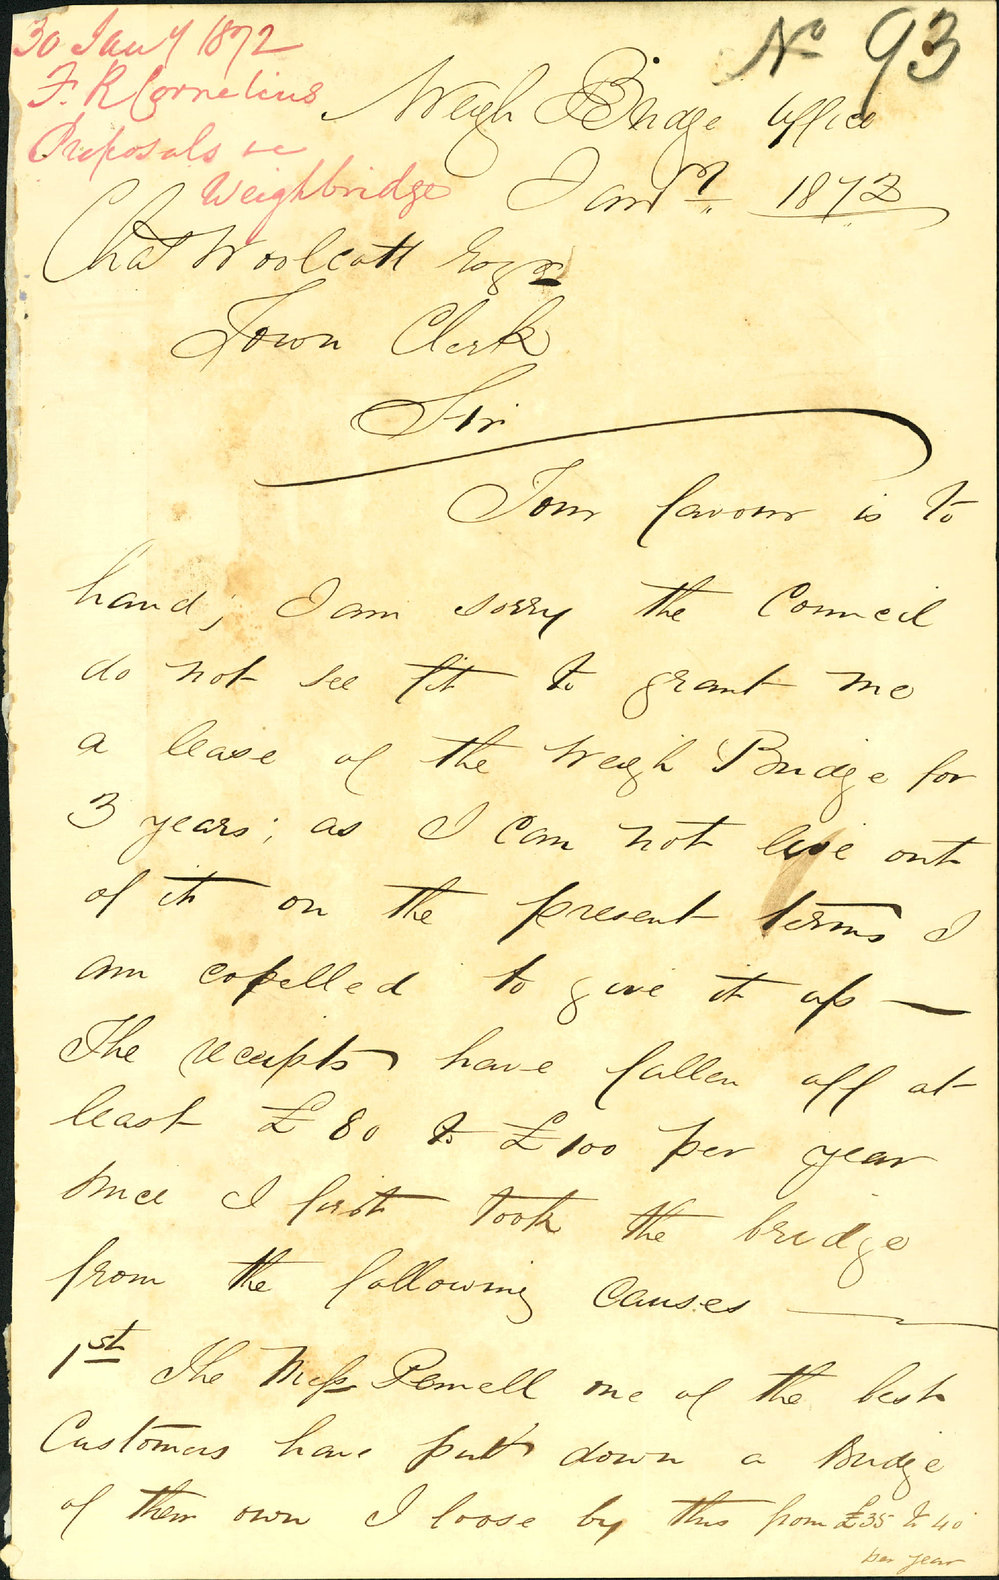 30 Jany 1872
F. R Cornelius
Proposals re
Weighbridge
No 93
Weigh Bridge Office
Jany 1872
Chas Woolcott Esqre
Town Clerk
Sir
Your favour is to
hand; I am sorry the Council
do not see fit to grant me
a lease of the Weigh Bridge for
3 years; as I can not live out
of it on the present terms I
am copelled to give it up —
The receipts have fallen off at
least £80 to £100 per year
since I first took the bridge
from the following causes —
1st The Messrs Pennell one of the best
Customers have putt down a Bridge
of their own I loose by this from £35 to 40
per year